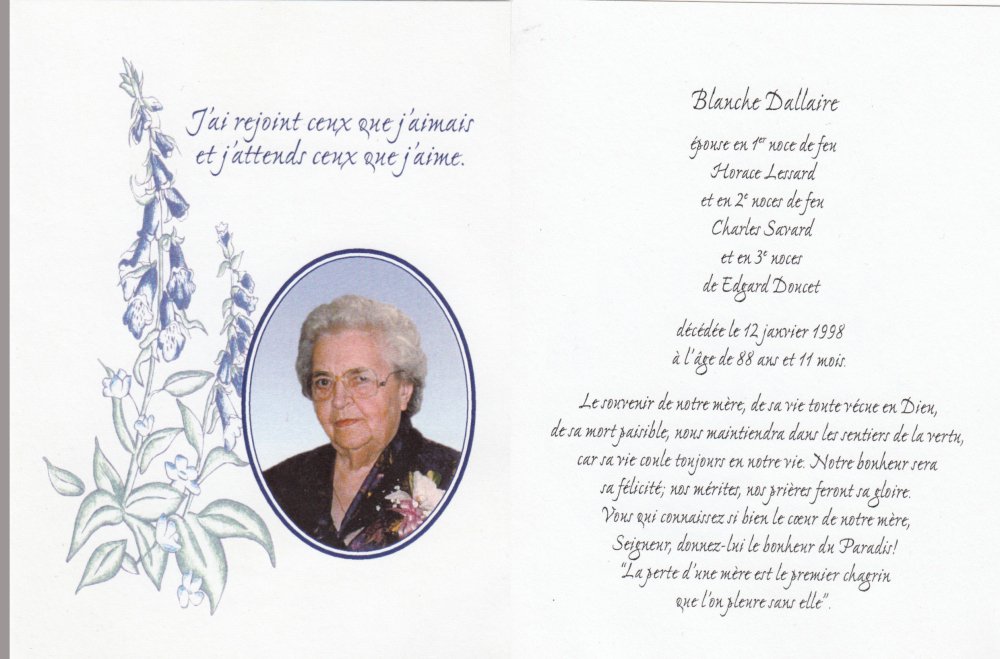 J'ai rejoint ceux que j'aimais
et j'attends ceux que j'aime.
Blanche Dallaire
épouse en 1er noce de feu
Horace Lessard
et en 2e noces de feu
Charles Savard
et en 3e noces
de Edgard Doucet
décédée le 12 janvier 1998
à l'âge de 88 ans et 11 mois.
Le souvenir de notre mère, de sa vie toute vécue en Dieu,
de sa mort paisible, nous maintiendra dans les sentiers de la vertu,
car sa vie coule toujours en notre vie. Notre bonheur sera
sa félicité; nos mérites, nos prières feront sa gloire.
Vous qui connaissez si bien le cœur de notre mère,
Seigneur, donnez-lui le bonheur du Paradis!
"La perte d'une mère est le premier chagrin
que l'on pleure sans elle".